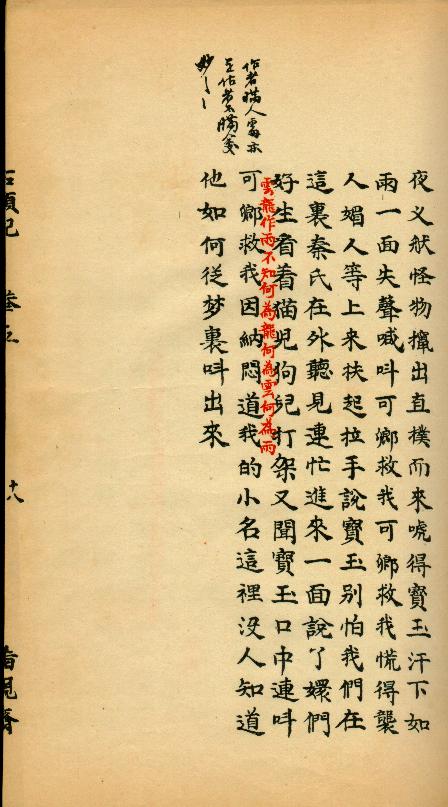 夜乂般怪物攛出直撲而來唬得寶玉汗下如
雨一面失聲喊呌可卿救我可卿救我慌得襲
人媚人等上來扶起拉手說寶玉別怕我們在
這裏秦氏在外聽見連忙進來一面說了嬛們
好生看着猫兒狗兒打架又聞寶玉口中連呌
雲龍作雨不知何為龍何為雲何為雨
可卿救我因納悶道我的小名這裡没人知道
他如何従梦裏呌出來
作者瞞人處亦
是作者不瞞處
妙
石頭記 卷五
十八
脂硯齋